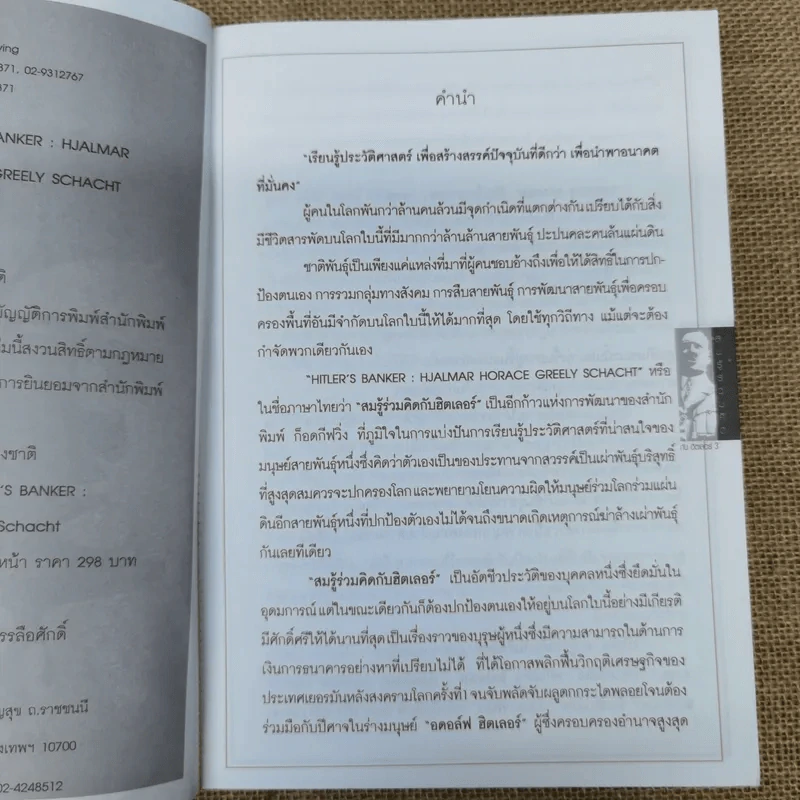 ving
371, 02-9312767
371
ANKER : HJALMAR
GREELY SCHACHT
ติ
บัญญัติการพิมพ์สำนักพิมพ์
มนี้สงวนสิทธิ์ตามกฎหมาย
การยินยอมจากสำนักพิมพ์
งชาติ
R'S BANKER :
Schacht
หน้า ราคา 298 บาท
รรลือศักดิ์
ญสุข ถ.ราชชนนี
งเทพฯ 10700
02-4248512
คำนำ
"เรียนรู้ประวัติศาสตร์ เพื่อสร้างสรรค์ปัจจุบันที่ดีกว่า เพื่อนำพาอนาคต
ที่มั่นคง"
ผู้คนในโลกพันกว่าล้านคนล้วนมีจุดกำเนิดที่แตกต่างกัน เปรียบได้กับสิ่ง
มีชีวิตสารพัดบนโลกใบนี้ที่มีมากกว่าล้านล้านสายพันธุ์ ปะปนคละคนล้นแผ่นดิน
ชาติพันธุ์เป็นเพียงแค่แหล่งที่มาที่ผู้คนชอบอ้างถึงเพื่อให้ได้สิทธิ์ในการปก-
ป้องตนเอง การรวมกลุ่มทางสังคม การสืบสายพันธุ์ การพัฒนาสายพันธุ์เพื่อครอบ
ครองพื้นที่อันมีจำกัดบนโลกใบนี้ให้ได้มากที่สุด โดยใช้ทุกวิถีทาง แม้แต่จะต้อง
กำจัดพวกเดียวกันเอง
"HITLER'S BANKER : HJALMAR HORACE GREELY SCHACHT" หรือ
ในชื่อภาษาไทยว่า "สมรู้ร่วมคิดกับฮิตเลอร์" เป็นอีกก้าวแห่งการพัฒนาของสำนัก
พิมพ์ ก็อดกีฟวิ่ง ที่ภูมิใจในการแบ่งปันการเรียนรู้ประวัติศาสตร์ที่น่าสนใจของ
มนุษย์สายพันธุ์หนึ่งซึ่งคิดว่าตัวเองเป็นของประทานจากสวรรค์เป็นเผ่าพันธุ์บริสุทธิ์
ที่สูงสุดสมควรจะปกครองโลก และพยายามโยนความผิดให้มนุษย์ร่วมโลกร่วมแผ่น
ดินอีกสายพันธุ์หนึ่งที่ปกป้องตัวเองไม่ได้จนถึงขนาดเกิดเหตุการณ์ฆ่าล้างเผ่าพันธุ์
กันเลยทีเดียว
"สมรู้ร่วมคิดกับฮิตเลอร์" เป็นอัตชีวประวัติของบุคคลหนึ่งซึ่งยึดมั่นใน
อุดมการณ์ แต่ในขณะเดียวกันก็ต้องปกป้องตนเองให้อยู่บนโลกใบนี้อย่างมีเกียรติ
มีศักดิ์ศรีให้ได้นานที่สุด เป็นเรื่องราวของบุรุษผู้หนึ่งซึ่งมีความสามารถในด้านการ
เงินการธนาคารอย่างหาที่เปรียบไม่ได้ ที่ได้โอกาสพลิกฟื้นวิกฤติเศรษฐกิจของ
ประเทศเยอรมันหลังสงครามโลกครั้งที่1 จนจับพลัดจับผลูตกกระไดพลอยโจนต้อง
ร่วมมือกับปีศาจในร่างมนุษย์ "อดอล์ฟ ฮิตเลอร์" ผู้ซึ่งครอบครองอำนาจสูงสุด